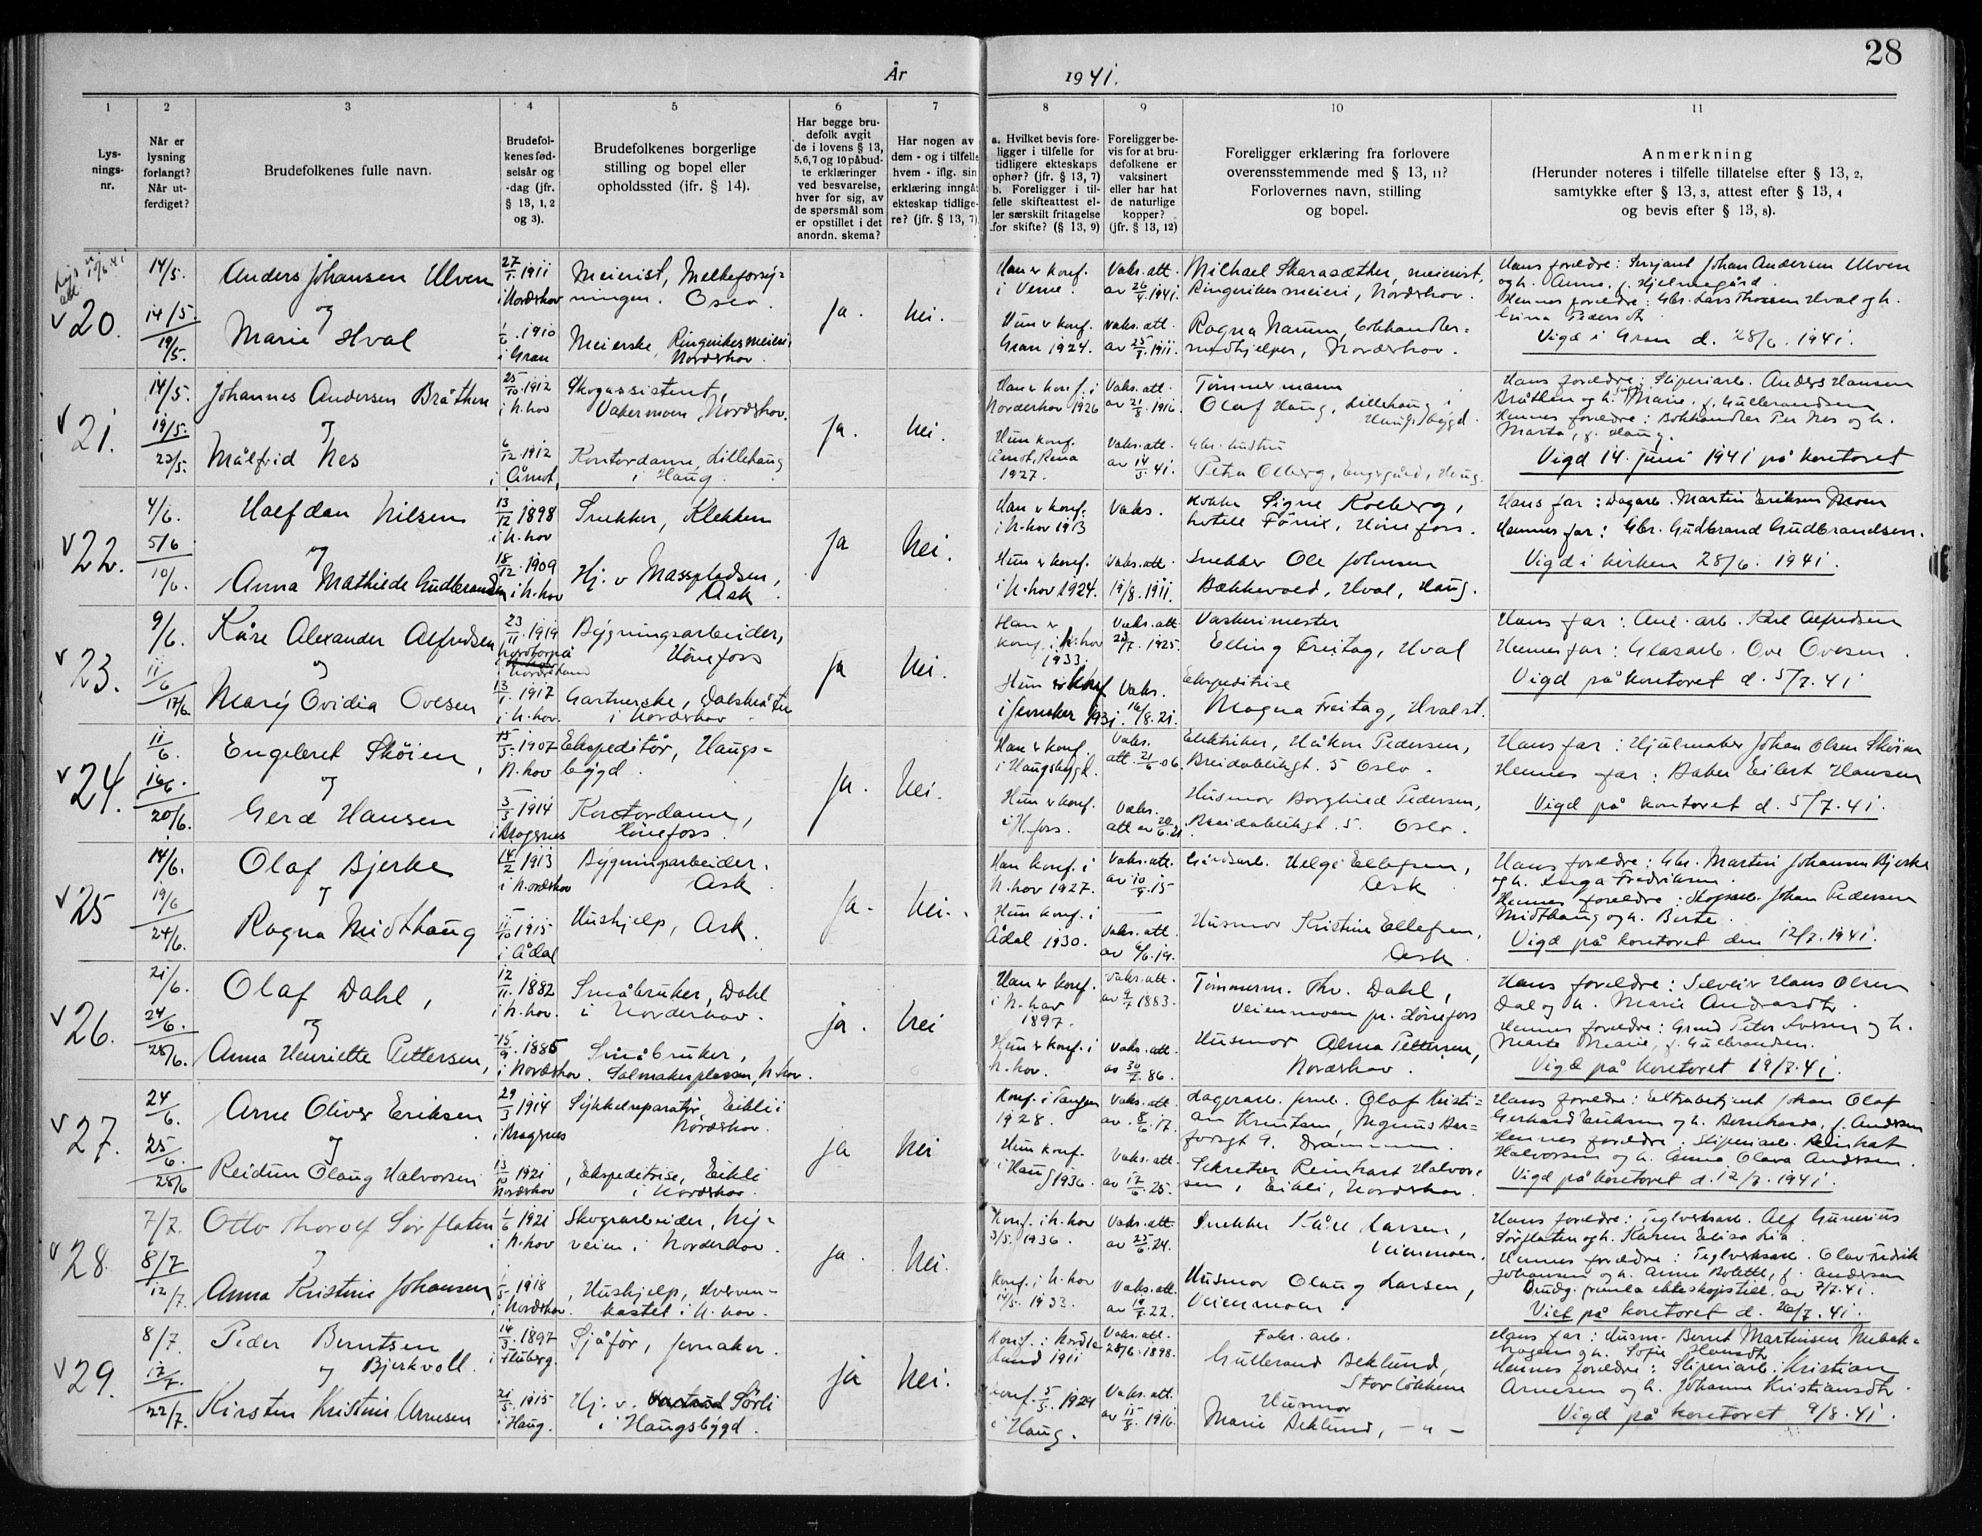 28
År 1941.
1 2 3 4 5 6 7 8 9 10 11
Lys-
nings-
nr.
Når er
lysning
forlangt?
Når ut-
ferdiget?
Brudefolkenes fulle navn.
Brudefol-
kenes fød-
selsår og
-dag (jfr.
§ 13, 1, 2
og 3).
Brudefolkenes borgerlige
stilling og bopel eller
opholdssted (jfr. § 14).
Har begge bru-
defolk avgit
de i lovens § 13,
5,6,7 og 10 påbud-
te erklæringer
ved besvarelse,
hver for sig, av
de spørsmål som
er opstillet i det
anordn. skema?
Har nogen av
dem - og i tilfelle
hvem - iflg. sin
erklæring inngått
ekteskap tidlige-
re? (jfr. § 13, 7).
a. Hvilket bevis fore-
ligger i tilfelle for
tidligere ekteskaps
ophør? (jfr. § 13, 7)
b. Foreligger i til-
felle skifteattest el-
ler særskilt fritagelse
for skifte? (§ 13, 9)
Foreligger be-
vis for at bru-
defolkene er
vaksinert
eller har hat
de naturlige
kopper?
(jfr. § 13, 12)
Foreligger erklæring fra forlovere
overensstemmende med § 13, 11?
Forlovernes navn, stilling
og bopel.
Anmerkning
(Herunder noteres i tilfelle tillatelse efter § 13, 2,
samtykke efter § 13, 3, attest efter § 13, 4
og bevis efter § 13, 8).
v 20.
14/5.
14/5.
19/5.
Anders Johansen Ulven
og
Marie Hval
27/1.1911
i Norderhov
1/6.1910
i Gran
Meierist, Melkeforsy-
ningen. Oslo.
Meierske, Ringerikes meieri,
Norderhov.
Ja.
Nei.
Han er konf.
i Verne.
Hun er konf.
Gran 1924.
Vaks. att.
av 26/4.1941.
Vaks. att.
av 25/9.1911.
Michael Skarasæther, meierist,
Ringerikes meieri, Norderhov.
Ragna Hamm, bokhandler-
medhjelper, Norderhov.
Hans foreldre: Serjant Johan Andersen Ulven
og h. Anne, f. Hjelmegård.
Vigd i Gran d. 28/6. 1941.
v 21.
14/5.
19/5.
23/5.
Johannes Andersen Bråthen
og
Målfrid Nes
25/10.1912
i N.hov
6/12.1912
i Åmot,
Skogassistent,
Vakermoen, Norderhov.
Kontordame, Lillehaug
i Haug.
Ja.
Nei.
Han er konf. i
Norderhov 1926
Hun konf.
Åmot, Rena
1927.
Vaks. att.
av 21/8.1916.
Vaks. att.
av 14/5 41.
Tømmermann
Olaf Haug, Lillehaug i
Haugsbygd.
Hans foreldre: Sliperiarb. Anders Hansen
Bråthen og h. Marie f. Gulbrandsen
Hennes foreldre: Bokhandler Per Nes og h.
Marta, f. Haug.
Vigd 14. juni 1941 på kontoret
v 22.
4/6.
5/6
10/6.
Halfdan Nilsen
og
Anna Mathilde Gudbrandsen
13/12 1898
i N.hov
18/12.1909
i N.hov
Snekker, Klekken
Hj. v Massplassen,
Ask
Ja
Nei.
Han er konf.
i N.hov 1913
Hun er konf.
i N.hov 1924.
Vaks.
Vaks. att.
19/8.1911.
Kokke Signe Kolberg,
hotell Fönix, Hönefoss.
Snekker Ole Johnsen
Bækkevold, Hval, Haug.
Hans far: Dagarb. Martin Eriksen Moen
Hennes far: Gbr. Gudbrand Gudbrandsen.
Vigd i kirken 28/6. 1941.
v 23.
9/6.
11/6
17/6.
Kåre Alexander Alfredsen
og
Mary Ovidia Ovesen
23/11.1919
13/1.1917
i N.hov.
Bygningsarbeider,
Hönefoss
Gartnerske, Dalsbråten
i Norderhov
Ja
Nei.
Han er
konf. i N.hov
1933.
Hun er konf
i Jevnaker 1931.
Vaks. att
23/7.1925.
Vaks.
16/8.21.
Vaskerimester
Elling Freitag, Hval
Ekspeditrise
Magna Freitag, Hval st.
Hans far: Anl. arb. Karl Alfredsen
Hennes far: Glasarb. Ove Ovesen.
Vigd på kontoret d. 5/7.41
v 24.
11/6.
16/6.
20/6.
Engebret Skøien,
og
Gerd Hansen
15/5.1907
N.hov
3/3 1914
i Bragernes
Ekspeditør, Haugs-
bygd.
Kontordame,
Hönefoss.
Ja.
Nei.
Han er konf.
i Haugsbygd.
Hun er konf.
i H.foss.
Vaks.
att. 21/6.06.
Vaks.
att av 20/6.21
Elektriker, Håkon Pedersen,
Breidablikgt. 5 Oslo.
Husmor Borghild Pedersen,
Breidablikgt. 5. Oslo.
Hans far: Hjulmaker Johan Olsen Skøien
Hennes far: Baker Eilert Hansen
Vigd på kontoret d. 5/7.41.
v 25
14/6.
19/6
24/6.
Olaf Bjerke
og
Ragna Midthaug
14/2 1913
i Norderhov
11/10 1915
i Ådal
Bygningsarbeider.
Ask
Hushjelp, Ask.
Ja.
Nei.
Han konf. i
N.hov 1927.
Hun konf. i
Ådal 1930.
Vaks. att.
av 10/9.15
Vaks. att.
av 6/6.19.
Gårdsarb. Helge Ellefsen,
Ask
Husmor Kristine Ellefsen,
Ask
Hans foreldre: Gbr. Martin Johansen Bjerke
og h. Inga Fredriksen.
Hennes foreldre: Skogsarb. Johan Pedersen
Midthaug og h. Berte.
Vigd på kontoret den 12/7.1941.
v 26.
21/6.
24/6.
28/6.
Olaf Dahl,
og
Anna Henriette Pettersen,
12/11.1882
i N.hov.
15/9.1885
i Norderhov.
Småbruker, Dahl
i Norderhov.
Småbruker,
Salmakerplassen, N.hov.
ja.
Nei
Han er konf.
i N.hov
1897.
Hun er konf. i
N.hov.
Vaks. att.
av 9/7 1883.
Vaks. att.
av 30/7.86.
Tømmerm. Thv. Dahl,
Veienmoen pr. Hönefoss
Husmor Alma Pettersen,
Norderhov.
Hans foreldre: Selveier Hans Olsen
Dal og h. Marie Andreasdtr.
Marte Marie, f. Gulbrandsen.
Vigd på kontoret 19/7.41.
v 27.
24/6.
25/6.
28/6
Arne Oliver Eriksen
og
Reidun Olaug Halvorsen
29/3 1914
i Bragernes
13/10 1921
Norderhov
Sykkelreparatør, Eikli i
Norderhov.
Ekspeditrise, Eikli
i Norderhov.
ja
Nei
Konf. i Tangen
1928.
Hun konf.
i Haug 1936.
Vaks. att.
av. 8/6.17.
Vaks. att.
av 17/6.25.
Lagerarb. Olaf Kristi-
an Knutsen, Magnus Bar-
forsgt 9. Drammen.
Sekretær Reinhart Halvor-
sen, Eikli, Norderhov.
Hans foreldre: Johan Olaf
Gerhard Eriksen og h. Bernharda, f. Andersen
Hennes foreldre: Sliperiarb. Reinhart
Halvorsen og h. Anna Olava Andersen.
Vigd på kontoret d. 12/7. 1941.
v 28.
7/7.
8/7
12/7.
Otto Thorolf Sørflaten
og
Anna Kristine Johansen,
1/6 1921
i N.hov
1918
i Norderhov.
Skogsarbeider, Ny-
veien i Norderhov.
Hushjelp, Hverven-
kastet i N.hov.
ja.
Nei.
Konf. i N.hov
3/5. 1936.
Konf. i N.hov
14/5. 1933.
Vaks. att.
av 25/6.24.
Vaks. att.
av 19/9.22.
Snekker Kåre Larsen,
Veienmoen.
Husmor Olaug Larsen,
Veienmoen.
Hans foreldre: Teglverksarb. Alf Gunerius
Sørflaten og h. Karen Elisa Lik.
Hennes foreldre: Teglverksarb. Olav Fredrik
Johansen og h. Anna Bolette, f. Andersen
Viet på kontoret d. 26/7.41.
v 29.
8/7.
12/7.
22/7.
Peder Berntsen
og Bjerkvoll.
Kirsten Kristine Arnesen
14/3.1897
i Fluberg.
21/5.1915
i Haug.
Sjåfør, Jevnaker.
Hj. v. Sörli
i Haugsbygd.
ja
Nei.
Konf. i Nordre
Land 1911
Konf. 5/5. 1924
i Haug.
Vaks. att.
28/6.1898.
Vaks. att.
av 15/8.1916.
Fabr. arb.
Gulbrand Beklund,
Storløkken
Husmor
Marie Beklund, - " -
Hans far: Husm. Bernt Martinsen
Hennes foreldre: Sliperiarb. Kristian
Arnesen og h. Johanne Kristiansdtr.
Vigd på kontoret 9/8.41.